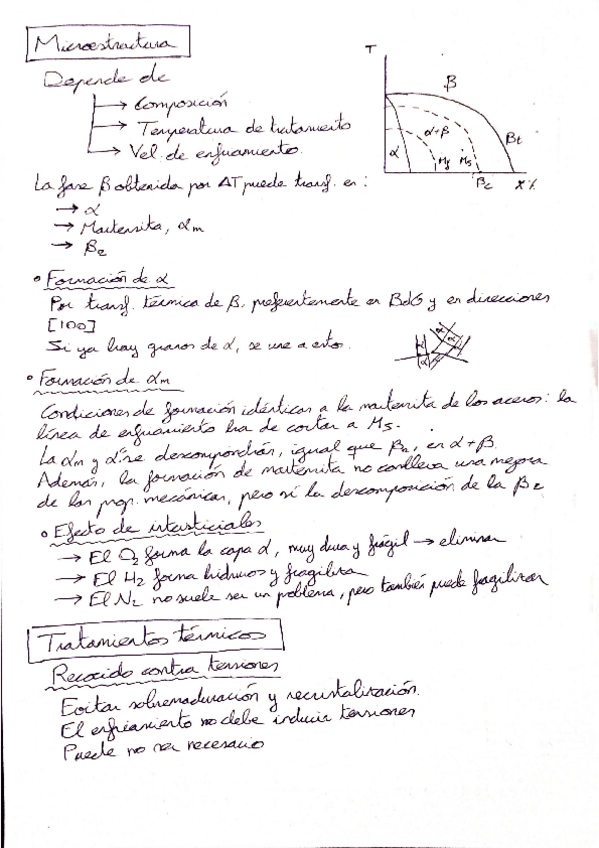 Microestructura
Depende de
→ Composición
→ Temperatura de tratamiento
→ Vel. de enfriamiento.
T
β
α+β
α
Mf
Ms
βt
βc
X%
La fase β obtenida por ΔT puede transf. en :
→ α
→ Martensita, αm
→ βe
• Formación de α
Por transf. térmica de β, preferentemente en BdG y en direcciones
[100]
Si ya hay granos de α, se une a estos.
α
α
α
• Formación de αm
Condiciones de formación idénticas a la martensita de los aceros: la
línea de enfriamiento ha de cortar a Ms.
La αm y α'' se descompondrán, igual que βe, en α + β.
Además, la formación de martensita no conlleva una mejora
de las prop. mecánicas, pero sí la descomposición de la βe
• Efecto de intersticiales
→ El O2 forma la capa α, muy dura y frágil → eliminar
→ El H2 forma hidruros y fragiliza
→ El N2 no suele ser un problema, pero también puede fragilizar
Tratamientos térmicos
Recocido contra tensiones
Evitar sobremaduración y recristalización.
El enfriamiento no debe inducir tensiones
Puede no ser necesario